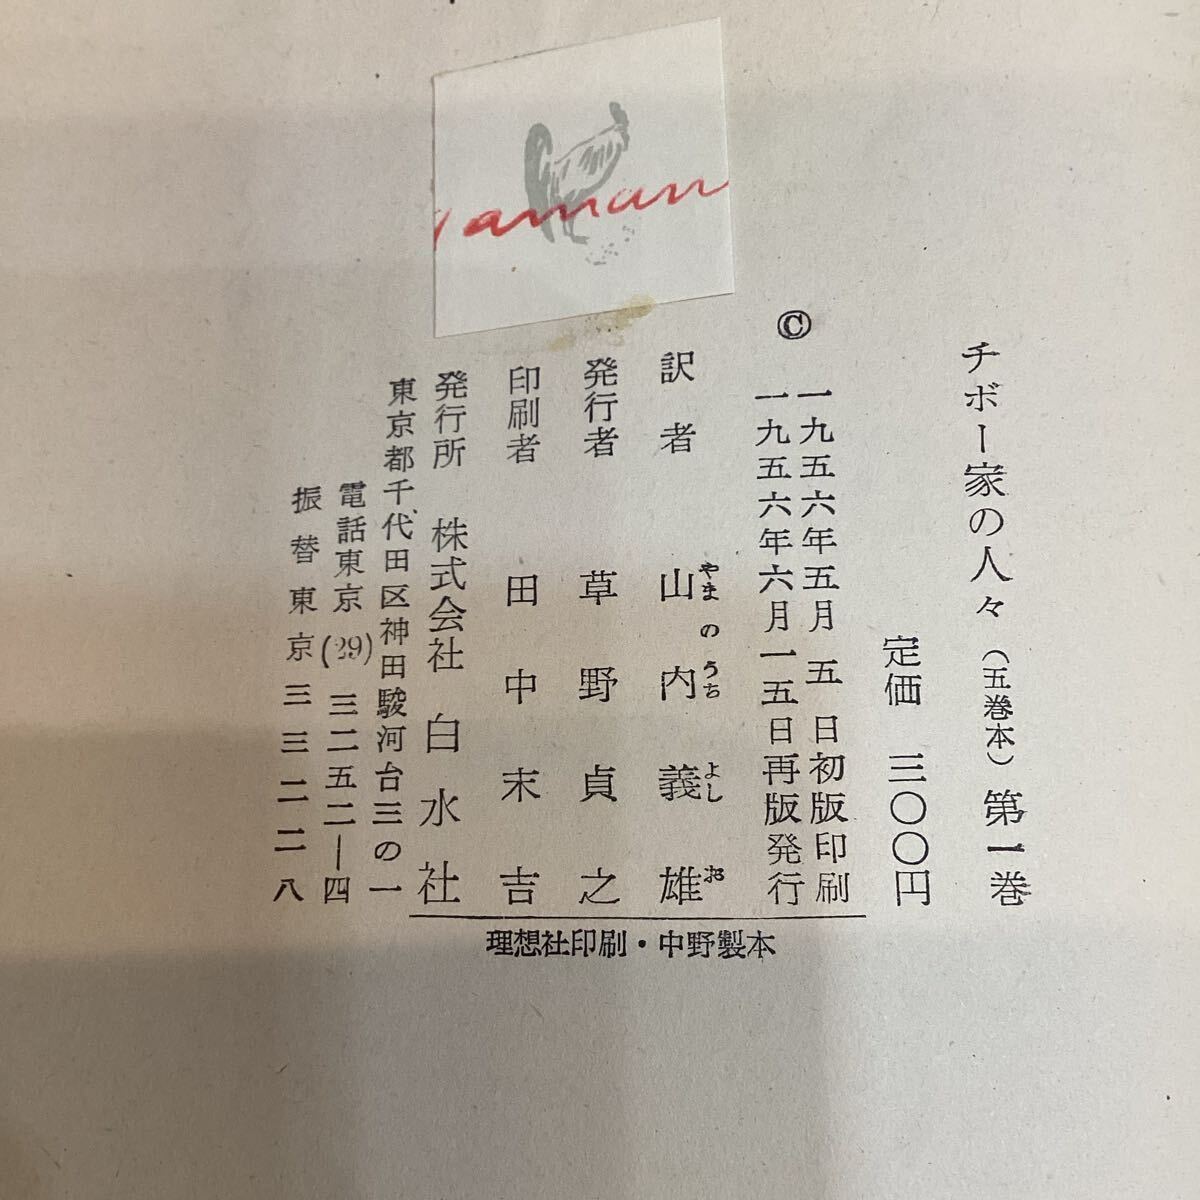 チボー家の人々（五巻本）第一巻
定価 三〇〇円
©
一九五六年五月五日初版印刷
一九五六年六月一五日再版発行
訳者 山内義雄
やまのうちよしお
発行者 草野貞之
印刷者 田中末吉
発行所 株式会社 白水社
東京都千代田区神田駿河台三の一
電話東京(29)三二五二―四
振替東京三三二二八
理想社印刷・中野製本
yaman